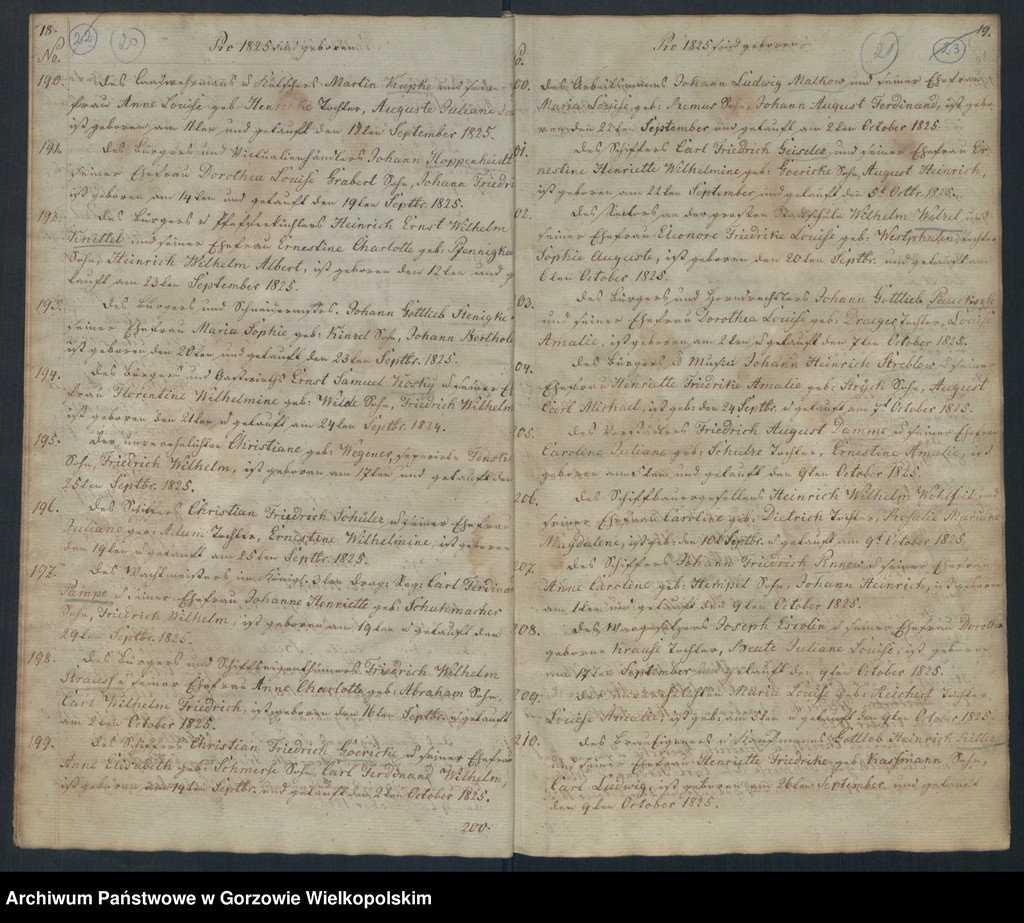 18.
22
20
Pro 1825 sind geboren.
No.
190. des Landwehrmanns u Kutschers Martin Kupke und seiner Ehe
frau Anne Louise geb: Tochter, Auguste Juliane
ist geboren am 11ten und getauft den 17ten September 1825.
191. des Bürgers und Victualienhändlers Johann Hoppenheidt
seiner Ehefrau Dorothea Louise Grabert Sohn, Johann Friedri
ist geboren am 14ten und getauft den 19ten Septbr. 1825.
192. des Bürgers u Pfefferküchlers Heinrich Ernst Wilhelm
Knittel und seiner Ehefrau Ernestine Charlotte geb: Pfennig
Sohn, Heinrich Wilhelm Albert, ist geboren den 12ten und g
tauft am 23ten September 1825.
193. des Bürgers und Schneidermstrs. Johann Gottlieb Henigke
seiner Ehefrau Maria Sophie geb: Kinzel Sohn, Johann Berthold
ist geboren den 20ten und getauft den 23ten Septbr. 1825.
194. des Bürgers und Gastwirths Ernst Samuel Kosky u seiner E
frau Florentine Wilhelmine geb: Wilde Sohn, Friedrich Wilhelm
ist geboren den 21ten u getauft am 24ten Septbr. 1824.
195. Der unverehelichten Christiane geb: Wegener, separirte
Sohn, Friedrich Wilhelm, ist geboren am 17ten und getauft den
25ten Septbr. 1825.
196. des Schiffers Christian Friedrich Schüler u seiner Ehefrau
Juliane geb: Adum Tochter, Ernestine Wilhelmine, ist geboren
den 19ten u getauft am 25ten Septbr. 1825.
197. des Wachtmeisters im Königl: 3ten Drag: Reg: Carl Ferdinand
Pampe u seiner Ehefrau Johanne Henriette geb: Schuhmacher
Sohn, Friedrich Wilhelm, ist geboren am 19ten u getauft den
29ten Septbr. 1825.
198. des Bürgers und Schiffseigenthümers Friedrich Wilhelm
Strauss u seiner Ehefrau Anne Charlotte geb: Abraham Sohn,
Carl Wilhelm Friedrich, ist geboren den 16ten Septbr. u getauft
am 2ten October 1825.
199. des Schiffers Christian Friedrich Goericke u seiner Ehefrau
Anne Elisabeth geb: Schmerse Sohn, Carl Ferdinand Wilhelm,
ist geboren am 19ten Septbr. und getauft den 2ten October 1825.
200.
19.
21
23
Pro 1825 sind geboren.
o.
00. des Arbeitsmanns Johann Ludwig Malkow und seiner Ehefrau
Maria Louise geb: Remus Sohn, Johann August Ferdinand, ist gebo
ren den 22ten September und getauft am 2ten October 1825.
01. des Schiffers Carl Friedrich Geiseler und seiner Ehefrau Er
nestine Henriette Wilhelmine geb: Goericke Sohn, August Heinrich,
ist geboren am 22ten September und getauft den 5t Octbr. 1825.
02. des Rectors an der großen Stadtschule Wilhelm Wetzel und
seiner Ehefrau Eleonore Friedrike Louise geb: Westphalen Tochter
Sophie Auguste, ist geboren den 20ten Septbr. und getauft am
6ten October 1825.
03. des Bürgers und Horndrechslers Johann Gottlieb
und seiner Ehefrau Dorothea Louise geb: Draeger Tochter, Louise
Amalie, ist geboren am 2ten u getauft den 7ten October 1825.
04. des Bürgers u Musici Johann Heinrich Streblow u seiner
Ehefrau Henriette Friedrike Amalie geb: Strijck Sohn, August
Carl Michael, ist geb: den 24 Septbr. u getauft am 7t October 1825.
205. des Vorstädters Friedrich August Damme u seiner Ehefrau
Caroline Juliane geb: Schulze Tochter, Ernestine Amalie, ist
geboren am 5ten und getauft den 9ten October 1825.
206. des Schiffbauergesellens Heinrich Wilhelm Wohlfeil und
seiner Ehefrau Caroline geb: Dietrich Tochter, Rosalie Mariane
Magdalene, ist geb: den 10t Septbr. u getauft am 9t October 1825.
207. des Schiffers Johann Friedrich Pinnow u seiner Ehefrau
Anne Caroline geb: Hempel Sohn, Johann Heinrich, ist geboren
am 1ten und getauft den 9ten October 1825.
208. des Joseph Esrolin u seiner Ehefrau Dorothea
geborne Krause Tochter, Beate Juliane Louise, ist geboren
am 17ten September und getauft den 9ten October 1825.
209. der unverehelichten Maria Louise geb: Reichert Tochter,
Louise Amalie, ist geb: am 3ten u getauft den 9ten October 1825.
210. des Braueigners u Kaufmanns Gottlob Heinrich Ritter
und seiner Ehefrau Henriette Friedrike geb: Kassmann Sohn,
Carl Ludwig, ist geboren am 26ten September und getauft
den 9ten October 1825.
Archiwum Państwowe w Gorzowie Wielkopolskim